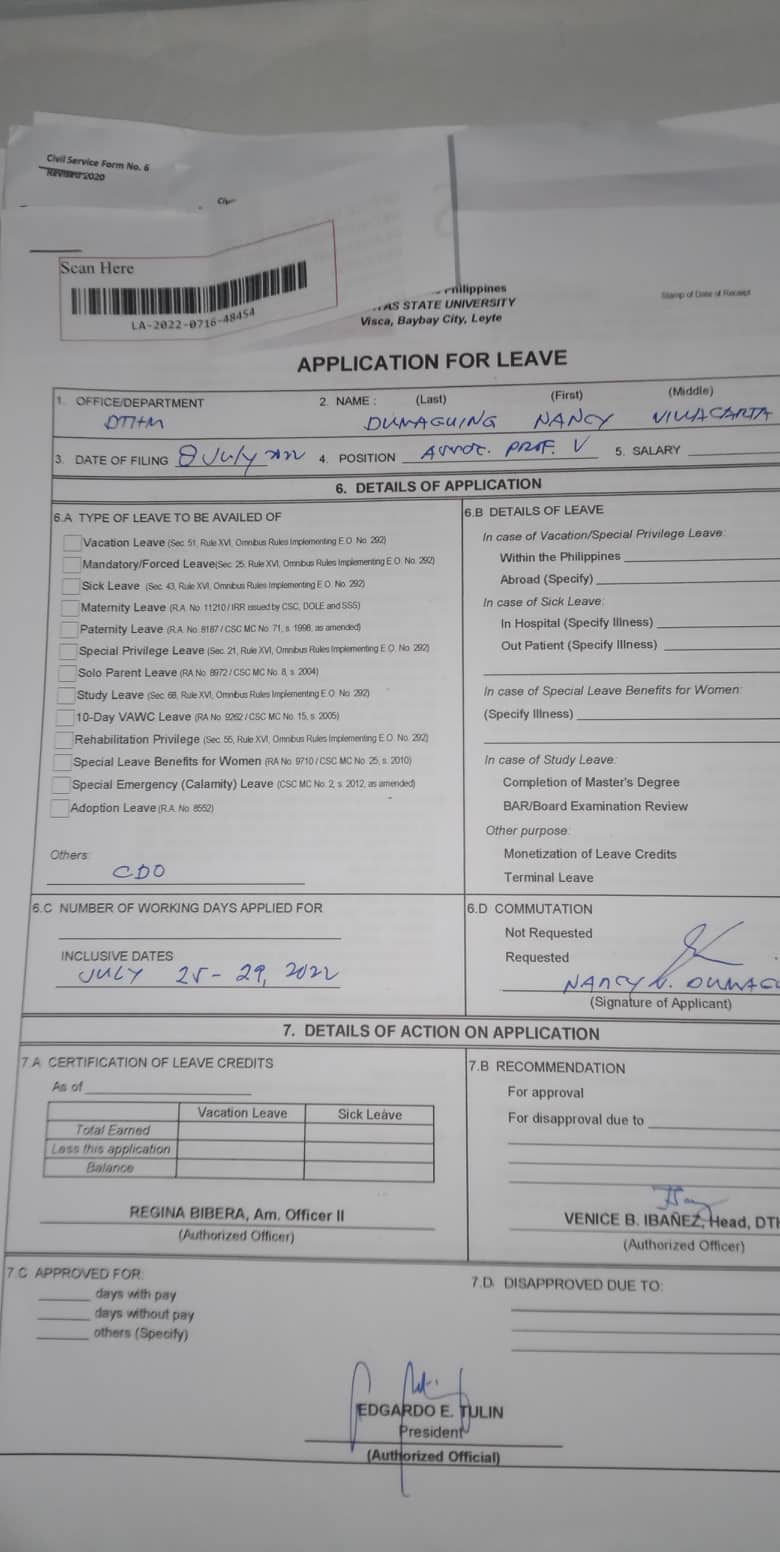 Civil Service Form No. 6
Revised 2020
Scan Here
LA-2022-0716-48454
Philippines
AS STATE UNIVERSITY
Visca, Baybay City, Leyte
Stamp of Date of Receipt
APPLICATION FOR LEAVE
1. OFFICE/DEPARTMENT 2. NAME : (Last) (First) (Middle)
DTHM DUMAGUING NANCY VILLACARTA
3. DATE OF FILING 8 July 2022 4. POSITION Assoc. Prof. V 5. SALARY
6. DETAILS OF APPLICATION
6.A TYPE OF LEAVE TO BE AVAILED OF
Vacation Leave (Sec. 51, Rule XVI, Omnibus Rules Implementing E.O. No. 292)
Mandatory/Forced Leave(Sec. 25, Rule XVI, Omnibus Rules Implementing E.O. No. 292)
Sick Leave (Sec. 43, Rule XVI, Omnibus Rules Implementing E.O. No. 292)
Maternity Leave (R.A. No. 11210 / IRR issued by CSC, DOLE and SSS)
Paternity Leave (R.A. No. 8187 / CSC MC No. 71, s. 1998, as amended)
Special Privilege Leave (Sec. 21, Rule XVI, Omnibus Rules Implementing E.O. No. 292)
Solo Parent Leave (RA No. 8972 / CSC MC No. 8, s. 2004)
Study Leave (Sec. 68, Rule XVI, Omnibus Rules Implementing E.O. No. 292)
10-Day VAWC Leave (RA No. 9262 / CSC MC No. 15, s. 2005)
Rehabilitation Privilege (Sec. 55, Rule XVI, Omnibus Rules Implementing E.O. No. 292)
Special Leave Benefits for Women (RA No. 9710 / CSC MC No. 25, s. 2010)
Special Emergency (Calamity) Leave (CSC MC No. 2, s. 2012, as amended)
Adoption Leave (R.A. No. 8552)
Others:
CDO
6.B DETAILS OF LEAVE
In case of Vacation/Special Privilege Leave:
Within the Philippines
Abroad (Specify)
In case of Sick Leave:
In Hospital (Specify Illness)
Out Patient (Specify Illness)
In case of Special Leave Benefits for Women:
(Specify Illness)
In case of Study Leave:
Completion of Master's Degree
BAR/Board Examination Review
Other purpose:
Monetization of Leave Credits
Terminal Leave
6.C NUMBER OF WORKING DAYS APPLIED FOR
INCLUSIVE DATES
JULY 25 - 29, 2022
6.D COMMUTATION
Not Requested
Requested
NANCY V. DUMAGU
(Signature of Applicant)
7. DETAILS OF ACTION ON APPLICATION
7.A CERTIFICATION OF LEAVE CREDITS
As of
Vacation Leave Sick Leave
Total Earned
Less this application
Balance
REGINA BIBERA, Am. Officer II
(Authorized Officer)
7.B RECOMMENDATION
For approval
For disapproval due to
VENICE B. IBAÑEZ, Head, DTH
(Authorized Officer)
7.C APPROVED FOR:
days with pay
days without pay
others (Specify)
7.D. DISAPPROVED DUE TO:
EDGARDO E. TULIN
President
(Authorized Official)